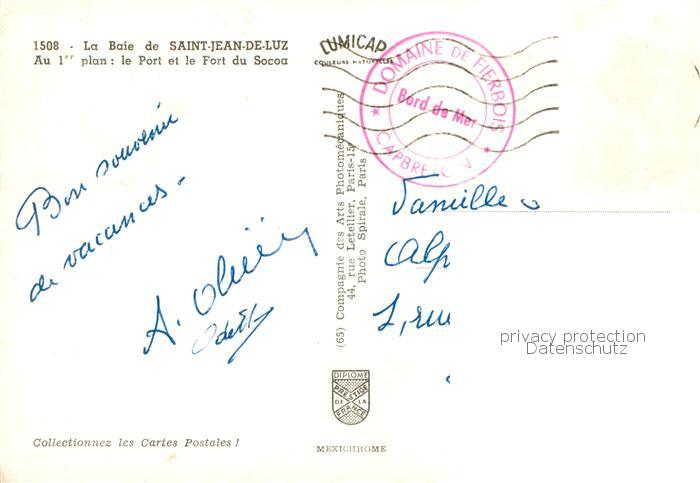 1508 - La Baie de SAINT-JEAN-DE-LUZ
Au 1er plan : le Port et le Fort du Socoa
LUMICAP
COULEURS NATURELLES
DOMAINE DE FIERBOIS
Bord de Mer
CAPBRETON
Bon souvenir
de vacances -
A. Olivier
Odette
(65) Compagnie des Arts Photomécaniques
44, rue Letellier, Paris-15e
Photo Spirale, Paris
Famille
Alp
1, rue
privacy protection
Datenschutz
DIPLOME
PRESTIGE
DE LA
FRANCE
Collectionnez les Cartes Postales !
MEXICHROME